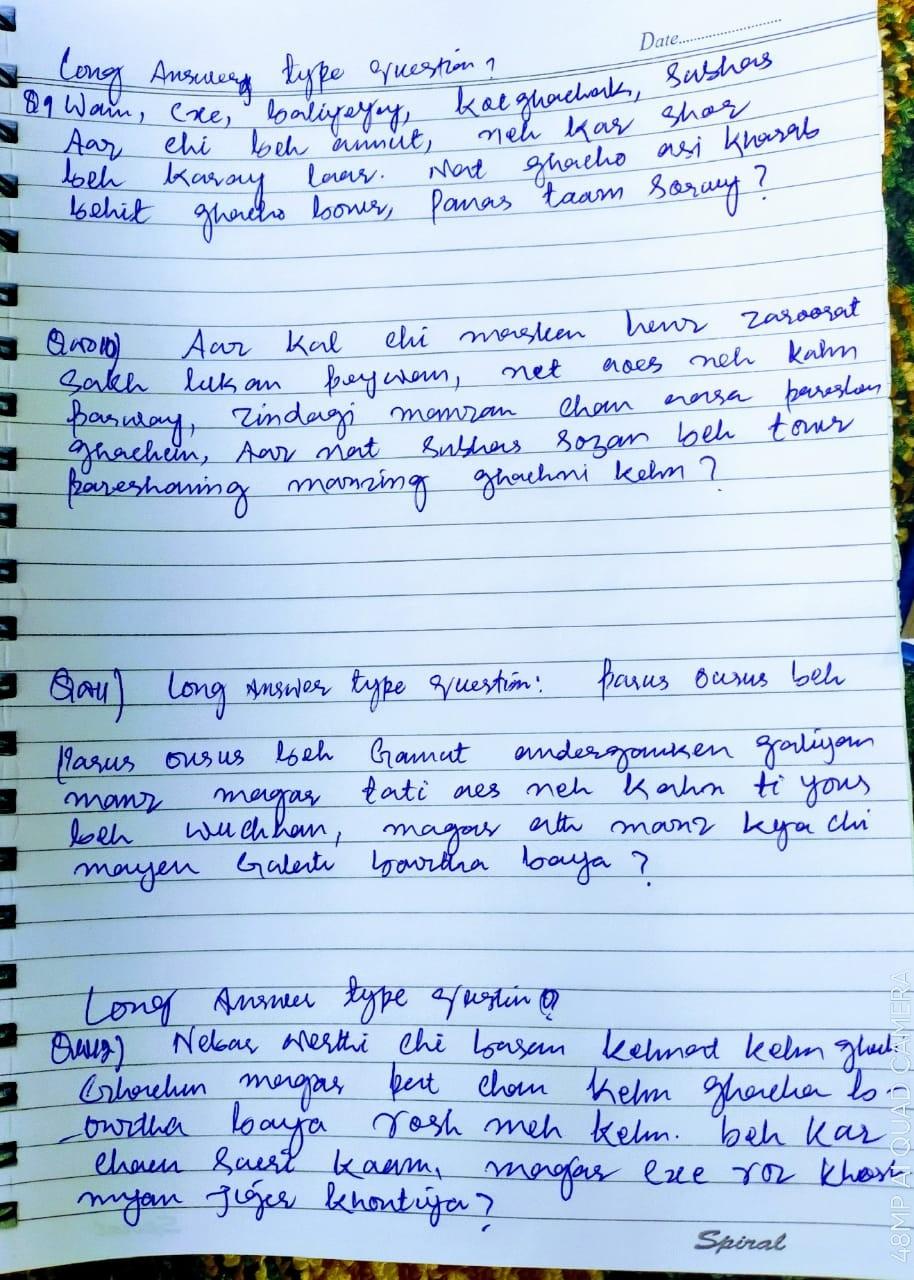 Date
Long Answer type question?
Q9 Wain, Exe, baliyeyey, kot ghachak, Subhas
Aaz chi beh amut, neh kar shor
beh karay laar. Nat ghacho asi kharab
behit ghacho bonur, Panas taam soruy?
Aaz kal chi masken henz zaroorat
Sakh lukan peywan, net aces neh kahn
parway, zindagi manzan chan aasa pareshan
ghachein, Aaz nat Subhas sozan beh tour
pareshaning manzing ghachni kehn?
Long Answer type question: parus ousus beh
Parus ousus beh Gamut andergamken galiyan
manz magar tati aes neh kahn ti yous
beh wuchhan, magar ath manz kya chi
mayen Galerti bowdha baya?
Long Answer type question?
Nebar chi basan kehnat kehn ghach.
Ghachun magar pat chan kehn ghacha bo-
-owdha baya rosh meh kehn. beh kar
chaen saeri kaam, magar exe roz khosh
myan Jiger khontiya?
Spiral
48MP AI QUAD CAMERA